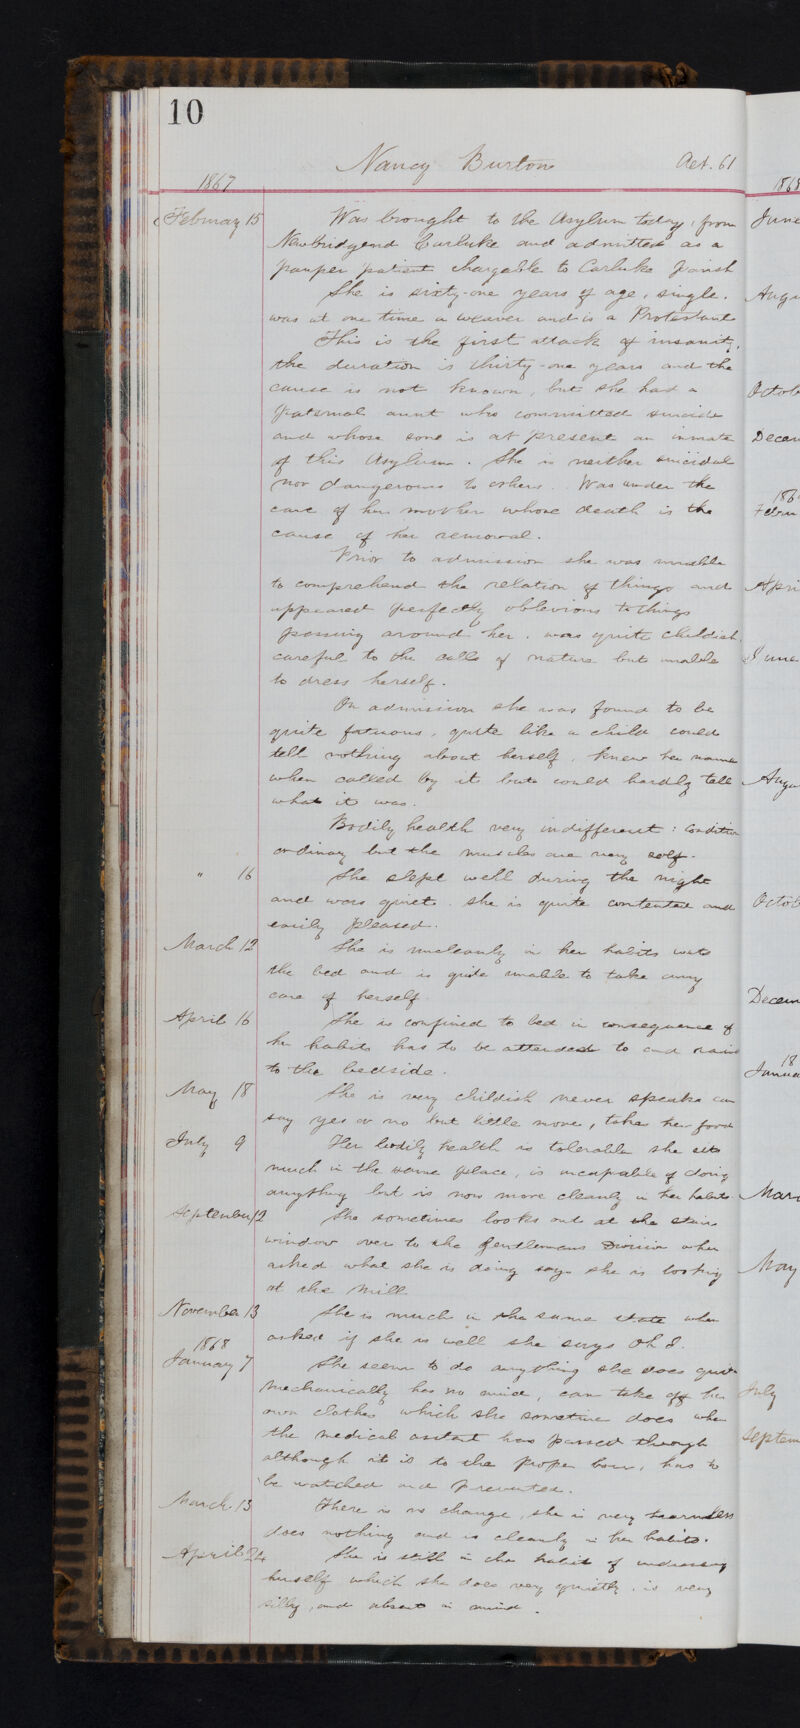 10
Nancy Burton Aet. 61
1867
February 15 Was brought to the Asylum today, from
Newbridgend Carluke and admitted as a
pauper patient chargeable to Carluke Parish
She is sixty-one years of age, single.
was at one time a weaver and is a Protestant
This is the first attack of insanity,
the duration is thirty-one years and the
cause is not known, but she had a
paternal aunt who committed suicide
and whose sone is at present an inmate
of this Asylum. She is neither suicidal
nor dangerous to others. Was under the
care of her mother whose death is the
cause of her removal.
Prior to admission she was unable
to comprehend the relation of things and
appeared perfectly oblevious to things
passing around her. was quite childish
careful to the calls of nature but unable
to dress herself.
On admission she was found to be
quite fatuous, quite like a child could
tell nothing about herself, knew her name
when called by it but could hardly tell
what it was.
Bodily health very indifferent: condition
ordinary but the muscles are very soft.
" 16 She slept well during the night
and was quiet. she is quite contented and
easily pleased.
March 12 She is uncleanly in her habits wets
the bed and is quite unable to take any
care of herself
April 16 She is confined to bed in consequence of
her habits has to be attended to and
to the bedside.
May 18 She is very childish never speaks can
say yes or no but little more, takes her food
July 9 Her bodily health is tolerable she sits
much in the same place, is incapable of doing
anything but is now more cleanly in her habits
September 12 She sometimes looks out at the stair
window over to the Gentlemans Division when
asked what she is doing says she is looking
at the Mill
November 13 She is much in the same state when
asked if she is well she says Oh I.
1868
January 7 She seems to do anything she does quite
mechanically has no mind, can take off her
own clothes which she sometime does when
the medical asitant has passed through
although it is to the proper hour, has to
be watched and prevented.
March 13 There is no change, she is very harmless
does nothing and is cleanly in her habits.
April 24 She is still in the habit of undressing
herself which she does very quietly. is very
silly, and absent in mind.
1868
June
Augu
Octob
Decem
186
Febru
Apri
June
Augu
Octob
Decem
18
Janua
Marc
May
July
Septem